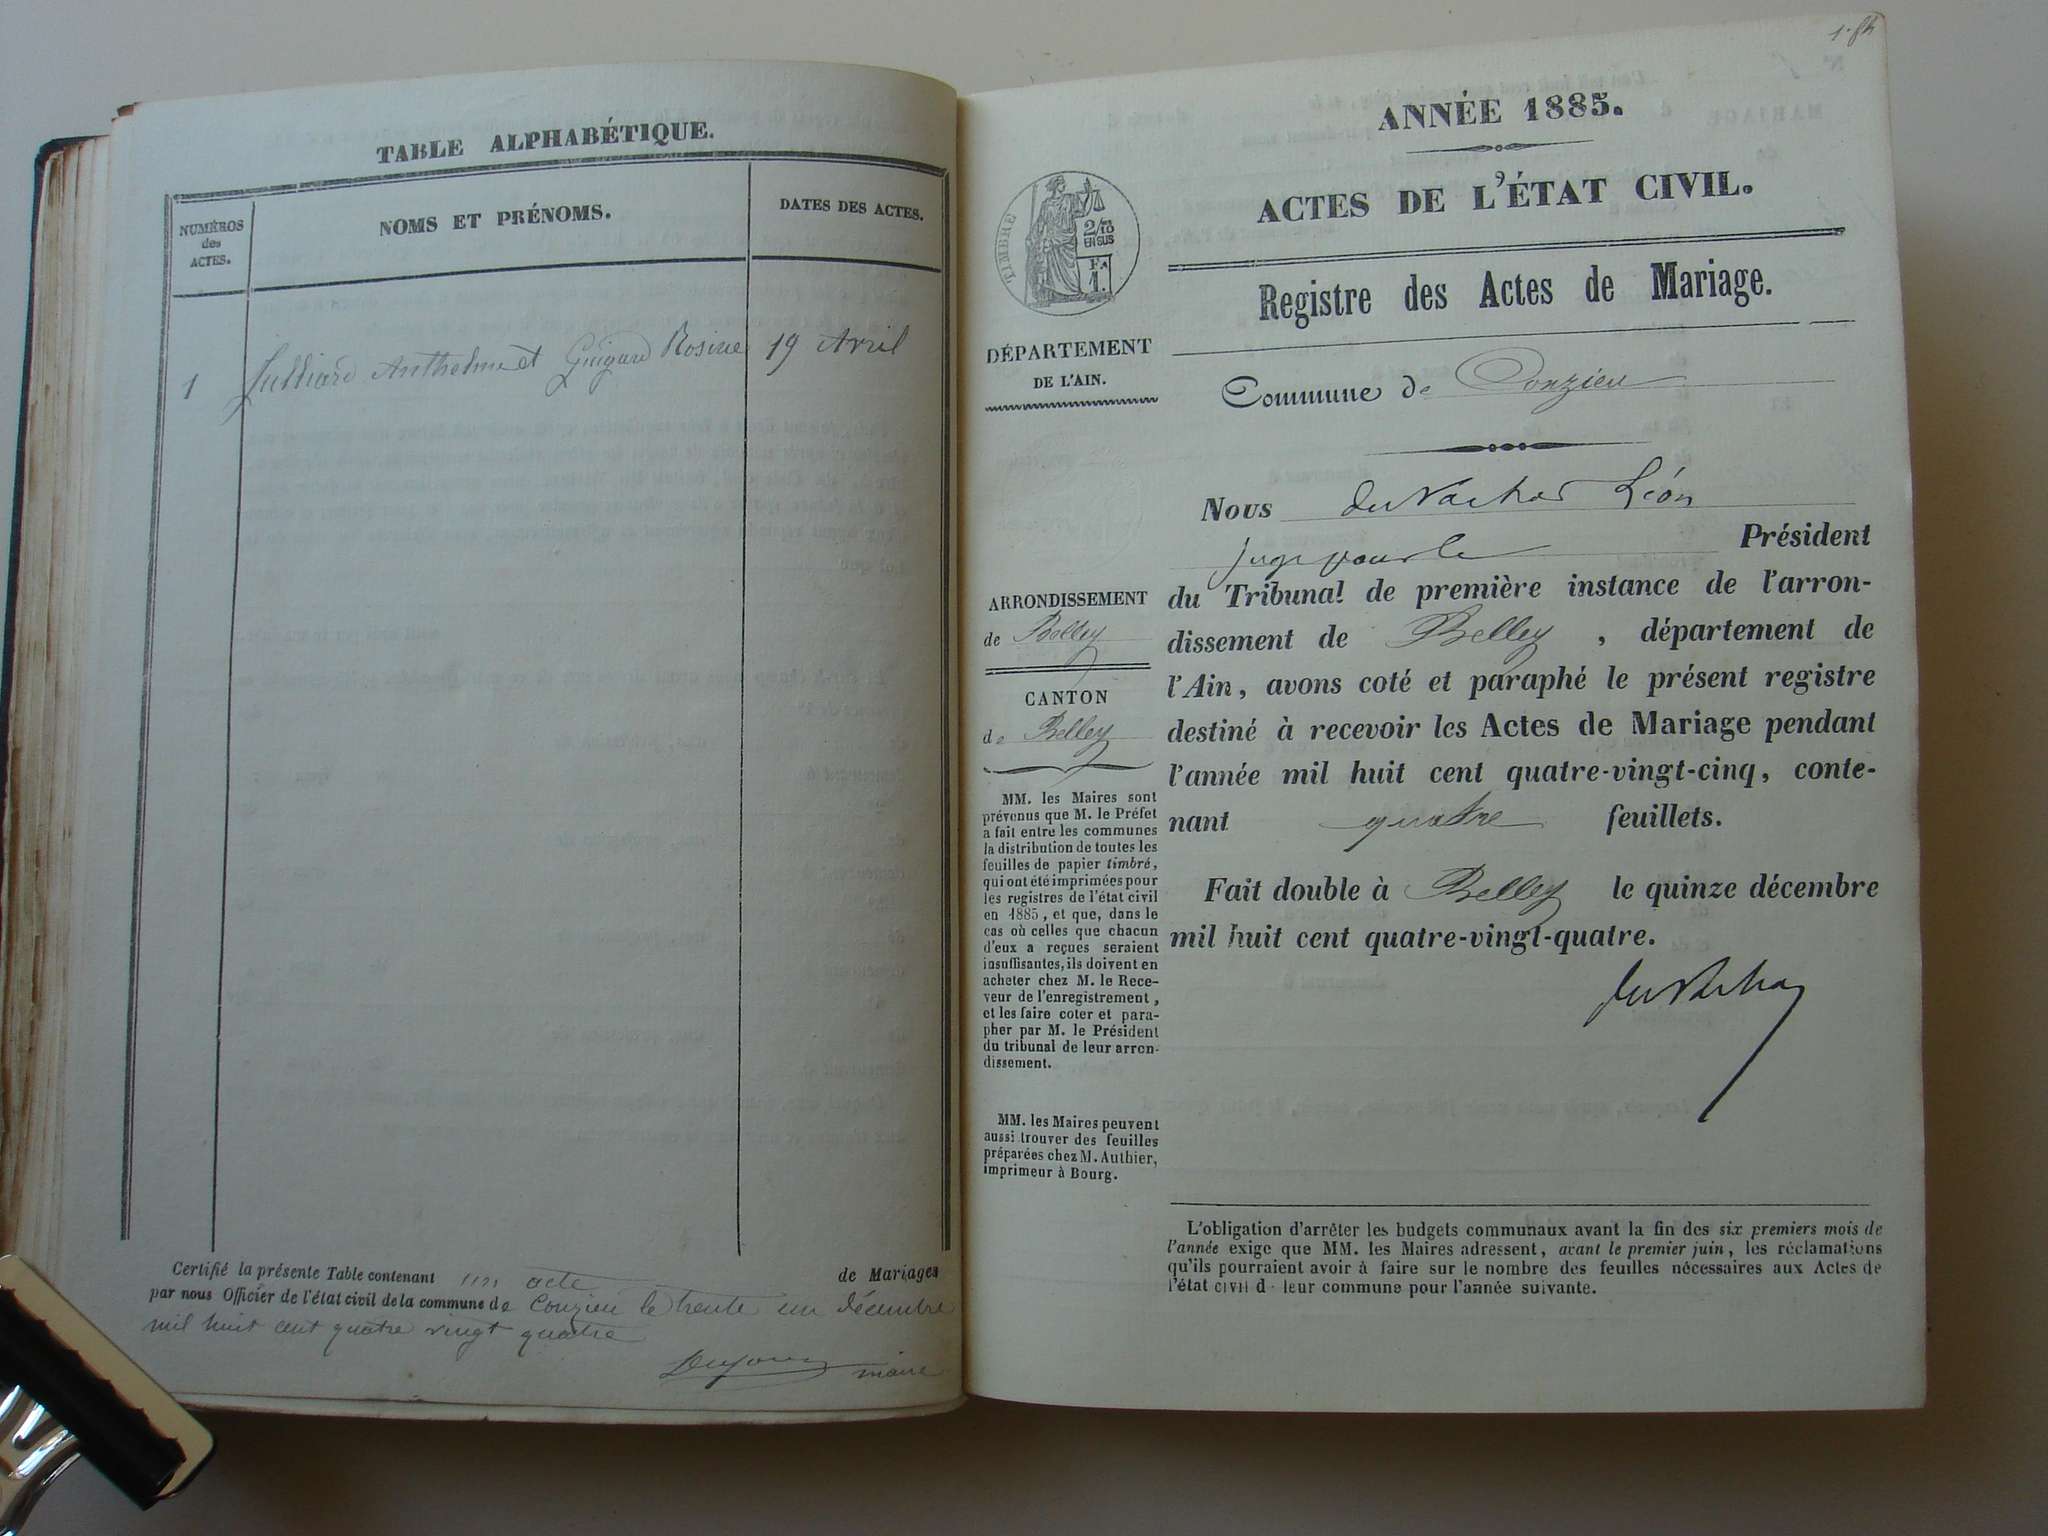 TABLE ALPHABÉTIQUE.
NUMÉROS
des
ACTES.
NOMS ET PRÉNOMS.
DATES DES ACTES.
1 Julliard Anthelme et Guigard Rosine 19 Avril
Certifié la présente Table contenant un acte de Mariages
par nous Officier de l'état civil de la commune de Conzieu le trente un décembre
mil huit cent quatre vingt quatre
maire
ANNÉE 1885.
ACTES DE L'ÉTAT CIVIL.
TIMBRE
2/10
EN SUS
1.
Registre des Actes de Mariage.
DÉPARTEMENT
DE L'AIN.
Commune de Conzieu
Nous du Vachat Léon
juge pour le Président
du Tribunal de première instance de l'arron-
dissement de Belley, département de
l'Ain, avons coté et paraphé le présent registre
destiné à recevoir les Actes de Mariage pendant
l'année mil huit cent quatre-vingt-cinq, conte-
nant quatre feuillets.
Fait double à Belley le quinze décembre
mil huit cent quatre-vingt-quatre.
du Vachat
ARRONDISSEMENT
de Belley
CANTON
de Belley
MM. les Maires sont
prévenus que M. le Préfet
a fait entre les communes
la distribution de toutes les
feuilles de papier timbré,
qui ont été imprimées pour
les registres de l'état civil
en 1885, et que, dans le
cas où celles que chacun
d'eux a reçues seraient
insuffisantes, ils doivent en
acheter chez M. le Rece-
veur de l'enregistrement,
et les faire coter et para-
pher par M. le Président
du tribunal de leur arron-
dissement.
MM. les Maires peuvent
aussi trouver des feuilles
préparées chez M. Authier,
imprimeur à Bourg.
L'obligation d'arrêter les budgets communaux avant la fin des six premiers mois de
l'année exige que MM. les Maires adressent, avant le premier juin, les réclamations
qu'ils pourraient avoir à faire sur le nombre des feuilles nécessaires aux Actes de
l'état civil d leur commune pour l'année suivante.